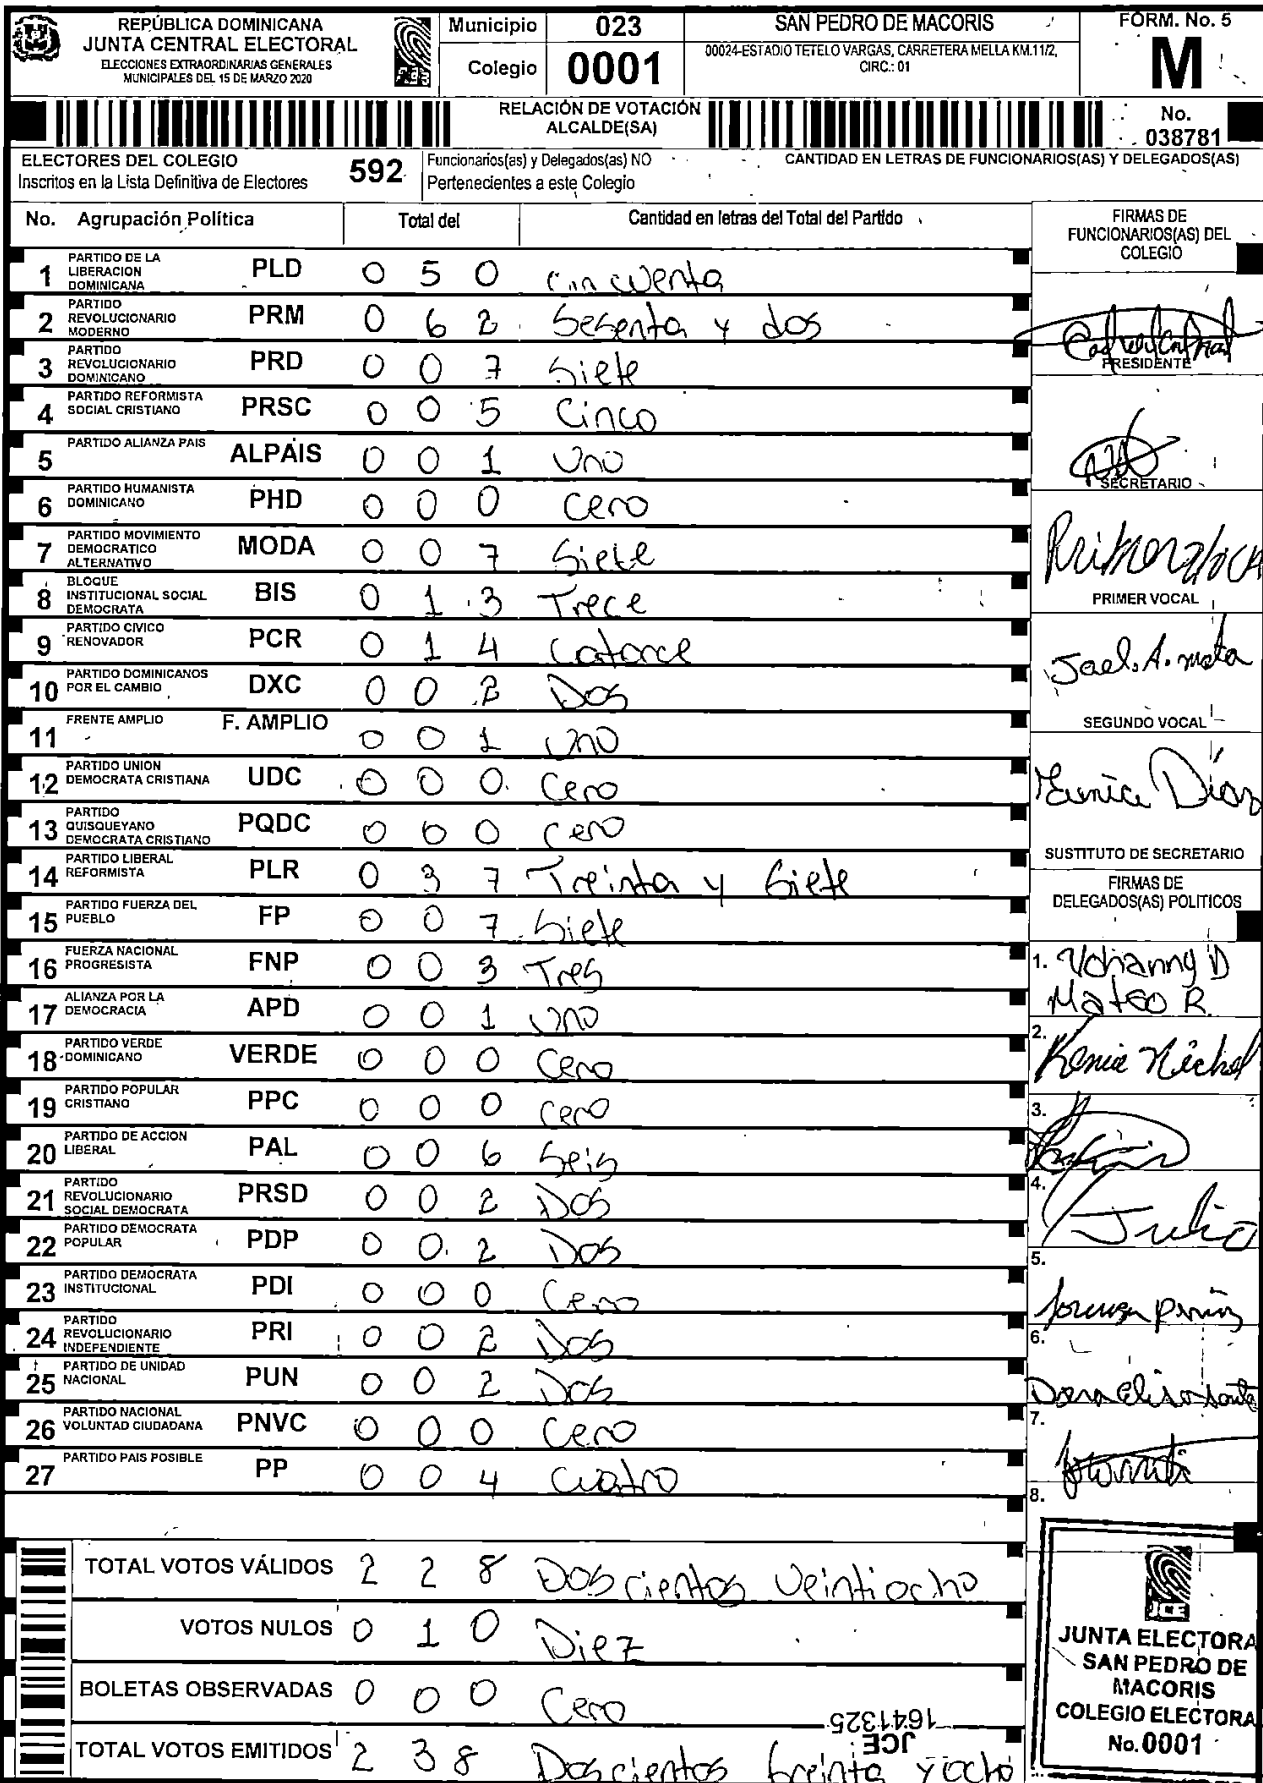 REPÚBLICA DOMINICANA
JUNTA CENTRAL ELECTORAL
ELECCIONES EXTRAORDINARIAS GENERALES
MUNICIPALES DEL 15 DE MARZO 2020
Municipio 023 SAN PEDRO DE MACORIS
Colegio 0001 00024-ESTADIO TETELO VARGAS, CARRETERA MELLA KM.11/2,
CIRC.: 01
FORM. No. 5
M
RELACIÓN DE VOTACIÓN
ALCALDE(SA)
No.
038781
ELECTORES DEL COLEGIO
Inscritos en la Lista Definitiva de Electores 592
Funcionarios(as) y Delegados(as) NO
Pertenecientes a este Colegio
CANTIDAD EN LETRAS DE FUNCIONARIOS(AS) Y DELEGADOS(AS)
No. Agrupación Política Total del Cantidad en letras del Total del Partido
1 PARTIDO DE LA LIBERACION DOMINICANA PLD 0 5 0 Cincuenta
2 PARTIDO REVOLUCIONARIO MODERNO PRM 0 6 2 Sesenta y dos
3 PARTIDO REVOLUCIONARIO DOMINICANO PRD 0 0 7 Siete
4 PARTIDO REFORMISTA SOCIAL CRISTIANO PRSC 0 0 5 Cinco
5 PARTIDO ALIANZA PAIS ALPAIS 0 0 1 Uno
6 PARTIDO HUMANISTA DOMINICANO PHD 0 0 0 Cero
7 PARTIDO MOVIMIENTO DEMOCRATICO ALTERNATIVO MODA 0 0 7 Siete
8 BLOQUE INSTITUCIONAL SOCIAL DEMOCRATA BIS 0 1 3 Trece
9 PARTIDO CIVICO RENOVADOR PCR 0 1 4 Catorce
10 PARTIDO DOMINICANOS POR EL CAMBIO DXC 0 0 2 Dos
11 FRENTE AMPLIO F. AMPLIO 0 0 1 Uno
12 PARTIDO UNION DEMOCRATA CRISTIANA UDC 0 0 0 Cero
13 PARTIDO QUISQUEYANO DEMOCRATA CRISTIANO PQDC 0 0 0 Cero
14 PARTIDO LIBERAL REFORMISTA PLR 0 3 7 Treinta y Siete
15 PARTIDO FUERZA DEL PUEBLO FP 0 0 7 Siete
16 FUERZA NACIONAL PROGRESISTA FNP 0 0 3 Tres
17 ALIANZA POR LA DEMOCRACIA APD 0 0 1 Uno
18 PARTIDO VERDE DOMINICANO VERDE 0 0 0 Cero
19 PARTIDO POPULAR CRISTIANO PPC 0 0 0 Cero
20 PARTIDO DE ACCION LIBERAL PAL 0 0 6 Seis
21 PARTIDO REVOLUCIONARIO SOCIAL DEMOCRATA PRSD 0 0 2 Dos
22 PARTIDO DEMOCRATA POPULAR PDP 0 0 2 Dos
23 PARTIDO DEMOCRATA INSTITUCIONAL PDI 0 0 0 Cero
24 PARTIDO REVOLUCIONARIO INDEPENDIENTE PRI 0 0 2 Dos
25 PARTIDO DE UNIDAD NACIONAL PUN 0 0 2 Dos
26 PARTIDO NACIONAL VOLUNTAD CIUDADANA PNVC 0 0 0 Cero
27 PARTIDO PAIS POSIBLE PP 0 0 4 Cuatro
TOTAL VOTOS VÁLIDOS 2 2 8 Doscientos Veintiocho
VOTOS NULOS 0 1 0 Diez
BOLETAS OBSERVADAS 0 0 0 Cero
TOTAL VOTOS EMITIDOS 2 3 8 Doscientos treinta y ocho
JCE
1641325
FIRMAS DE
FUNCIONARIOS(AS) DEL
COLEGIO
PRESIDENTE
SECRETARIO
PRIMER VOCAL
Jael. A. mota
SEGUNDO VOCAL
Eunice Díaz
SUSTITUTO DE SECRETARIO
FIRMAS DE
DELEGADOS(AS) POLITICOS
1. Yohanny D
Mateo R.
2. Kenia Michel
3.
4. Julio
5.
6.
7.
8.
JCE
JUNTA ELECTORA
SAN PEDRO DE
MACORIS
COLEGIO ELECTORA
No. 0001